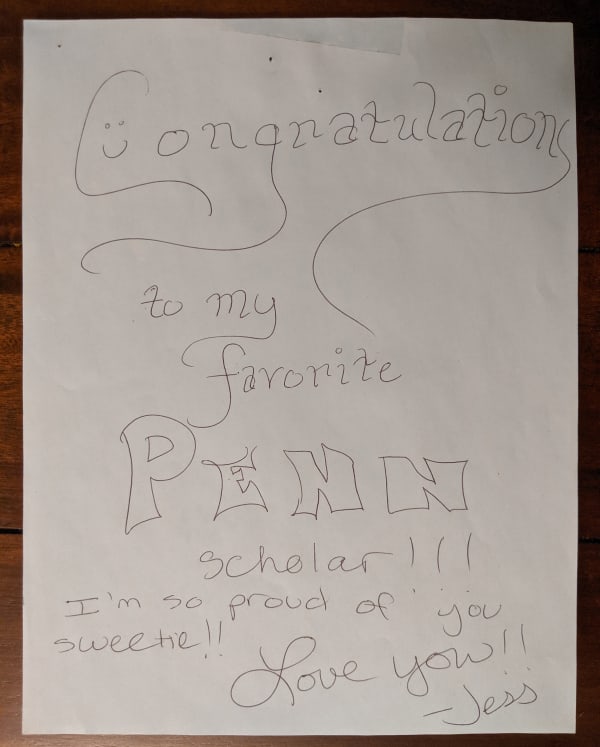 Congratulations
to my
favorite
PENN
scholar!!!
I'm so proud of you
sweetie!!
Love you!!
-Jess